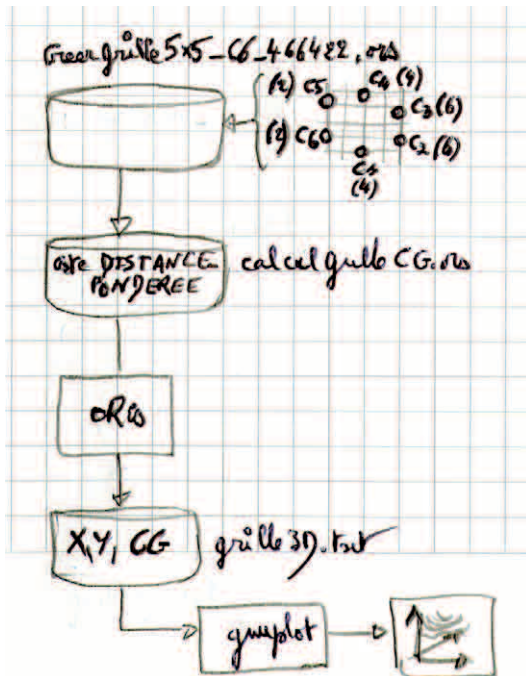 Creer grille 5x5_C6_466422.ors
(2) C5 C4 (4)
C3 (6)
(2) C6 C2 (6)
C1
(4)
DISTANCE_
PONDEREE
calcul grille CG.ors
oRis
X, Y, CG
grille 3D.txt
gnuplot